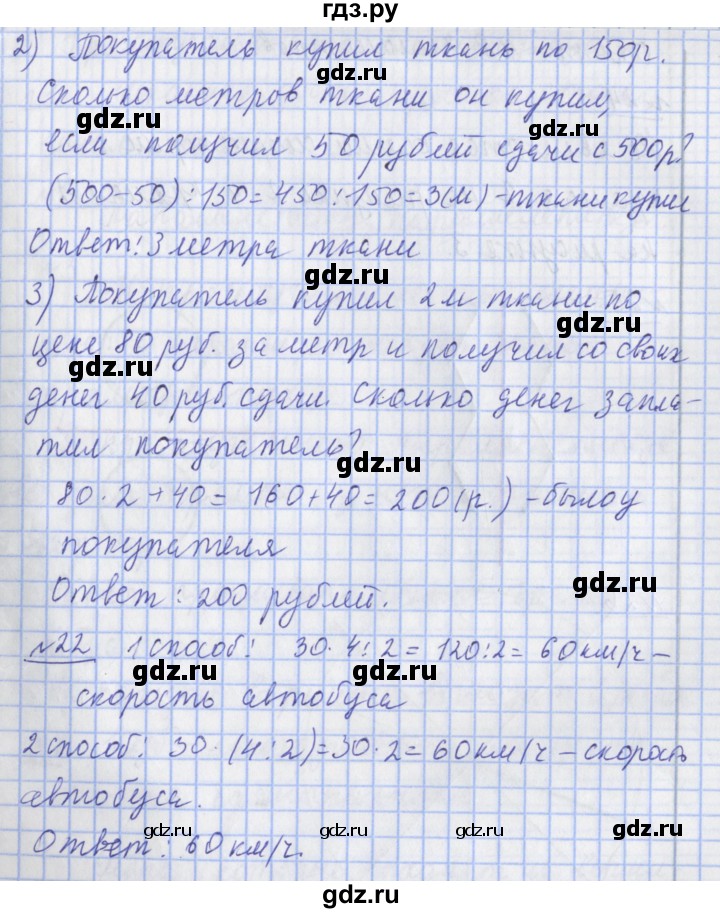 гдз.ру
2) Покупатель купил ткань по 150р.
gdz.ru
Сколько метров ткани он купил,
gdz.ru gdz.ru
если получил 50 рублей сдачи с 500р?
(500-50):150=450:150=3(м)-ткани купил
Ответ: 3 метра ткани
gdz.ru
3) Покупатель купил 2м ткани по
gdz.ru
цене 80 руб. за метр и получил со своих
gdz.ru
денег 40 руб. сдачи. Сколько денег запла-
тил покупатель?
gdz.ru
80·2+40=160+40=200(р.)-было у
покупателя
gdz.ru
Ответ: 200 рублей.
№22 1 способ: 30·4:2=120:2=60км/ч-
gdz.ru
скорость автобуса
2 способ: 30·(4:2)=30·2=60км/ч-скорость
автобуса.
gdz.ru gdz.ru gdz.ru
Ответ: 60 км/ч.
gdz.ru